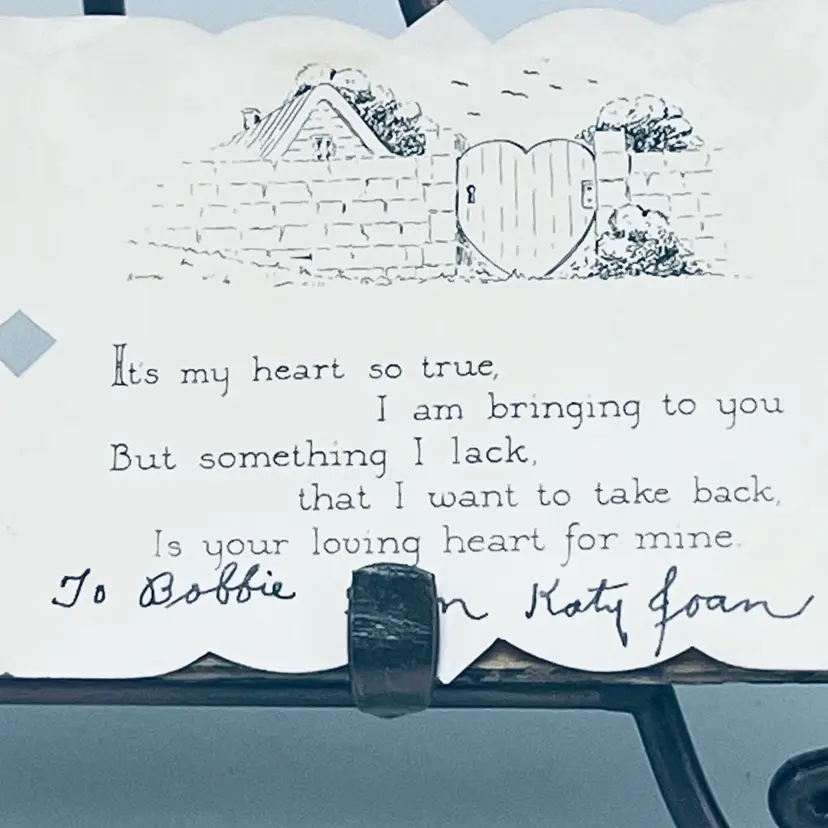 It's my heart so true,
I am bringing to you
But something I lack,
that I want to take back,
Is your loving heart for mine.
To Bobbie Katy Joan